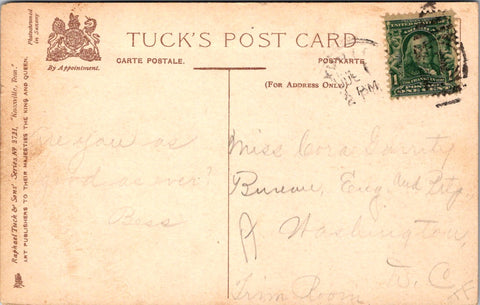 Photochromed
in Saxony
By Appointment.
TUCK'S POST CARD
CARTE POSTALE.
POSTKARTE.
(FOR ADDRESS ONLY)
Raphael Tuck & Sons' Series No 2721, "Knoxville, Tenn."
ART PUBLISHERS TO THEIR MAJESTIES THE KING AND QUEEN.
PM
Are you as
good as ever?
Bess
Miss Cora
Bureau, Eng. and Prtg.
Washington,
D.C.
Trim Room